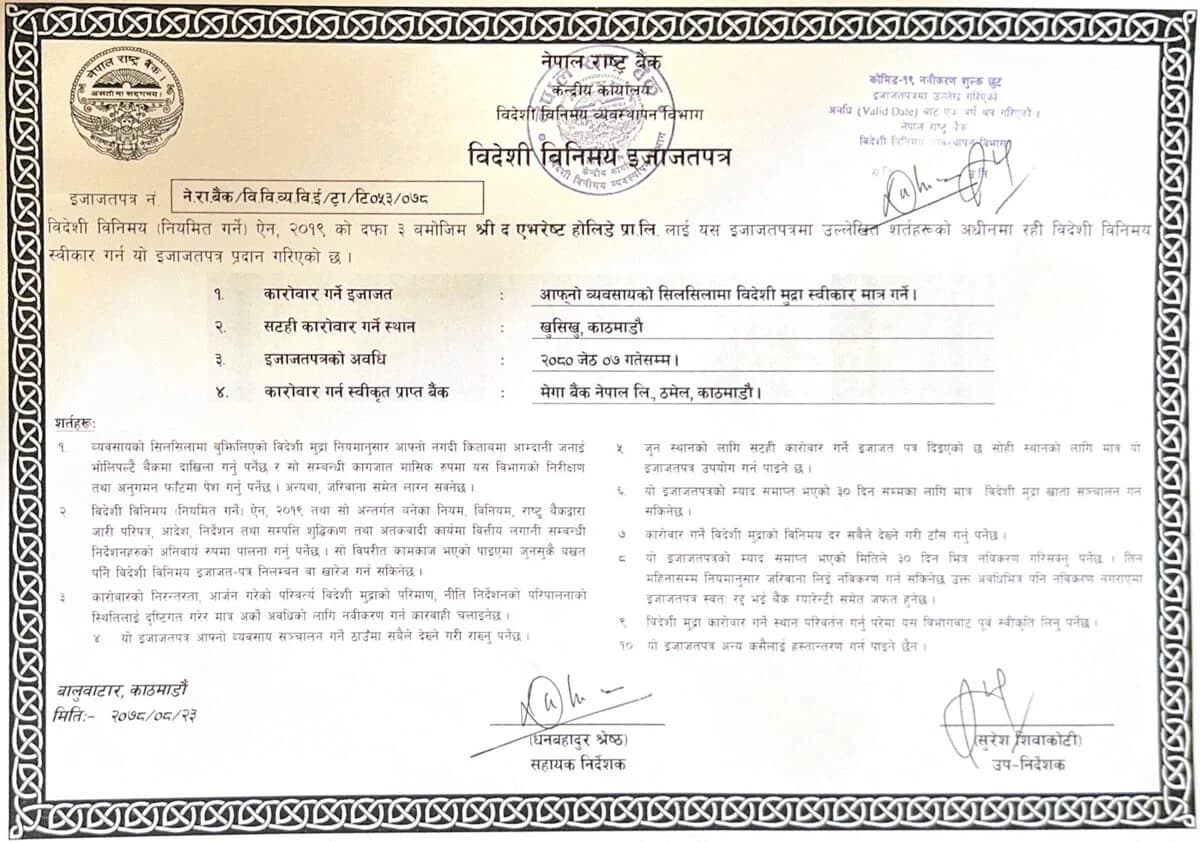 नेपाल राष्ट्र बैंक
केन्द्रीय कार्यालय
विदेशी विनिमय व्यवस्थापन विभाग
विदेशी विनिमय इजाजतपत्र
नेपाल राष्ट्र बैंक
असतो मा सद्गमय।
कोभिड-१९ नवीकरण शुल्क छुट
इजाजतपत्रमा उल्लेख गरिएको
अवधि (Valid Date) बाट एक वर्ष थप गरिएको ।
नेपाल राष्ट्र बैंक
विदेशी विनिमय व्यवस्थापन विभाग
इजाजतपत्र नं. ने.रा.बैंक/वि.वि.व्य.वि.ई/ट्रा/टि०५३/०७८
विदेशी विनिमय (नियमित गर्ने) ऐन, २०१९ को दफा ३ बमोजिम श्री द एभरेष्ट होलिडे प्रा.लि. लाई यस इजाजतपत्रमा उल्लेखित शर्तहरूको अधीनमा रही विदेशी विनिमय
स्वीकार गर्न यो इजाजतपत्र प्रदान गरिएको छ ।
१. कारोवार गर्ने इजाजत : आफ्नो व्यवसायको सिलसिलामा विदेशी मुद्रा स्वीकार मात्र गर्ने।
२. सटही कारोवार गर्ने स्थान : खुसिखु, काठमाडौ
३. इजाजतपत्रको अवधि : २०८० जेठ ०७ गतेसम्म।
४. कारोवार गर्न स्वीकृत प्राप्त बैंक : मेगा बैंक नेपाल लि., ठमेल, काठमाडौ।
शर्तहरू:
१. व्यवसायको सिलसिलामा बुझिलिएको विदेशी मुद्रा नियमानुसार आफ्नो नगदी किताबमा आम्दानी जनाई
भोलिपल्टै बैंकमा दाखिला गर्नु पर्नेछ र सो सम्बन्धी कागजात मासिक रुपमा यस विभागको निरीक्षण
तथा अनुगमन फाँटमा पेश गर्नु पर्नेछ । अन्यथा, जरिवाना समेत लाग्न सक्नेछ ।
२ विदेशी विनिमय (नियमित गर्ने) ऐन, २०१९ तथा सो अन्तर्गत बनेका नियम, विनियम, राष्ट्र बैंकद्वारा
जारी परिपत्र, आदेश, निर्देशन तथा सम्पत्ति शुद्धिकरण तथा अतंकवादी कार्यमा वित्तीय लगानी सम्बन्धी
निर्देशनहरुको अनिवार्य रुपमा पालना गर्नु पर्नेछ । सो विपरीत कामकाज भएको पाइएमा जुनसुकै बखत
पनि विदेशी विनिमय इजाजत-पत्र निलम्बन वा खारेज गर्न सकिनेछ ।
३ कारोबारको निरन्तरता, आर्जन गरेको परिवर्त्य विदेशी मुद्राको परिमाण, नीति निर्देशनको परिपालनाको
स्थितिलाई दृष्टिगत गरेर मात्र अर्को अवधिको लागि नवीकरण गर्न कारवाही चलाइनेछ ।
४ यो इजाजतपत्र आफ्नो व्यवसाय सञ्चालन गर्ने ठाउँमा सबैले देख्ने गरी राख्नु पर्नेछ ।
५ जुन स्थानको लागि सटही कारोवार गर्ने इजाजत पत्र दिइएको छ सोही स्थानको लागि मात्र यो
इजाजतपत्र उपयोग गर्न पाइने छ ।
६. यो इजाजतपत्रको म्याद समाप्त भएको ३० दिन सम्मका लागि मात्र विदेशी मुद्रा खाता सञ्चालन गर्न
सकिनेछ ।
७ कारोवार गर्ने विदेशी मुद्राको विनिमय दर सबैले देख्ने गरी टाँस गर्नु पर्नेछ ।
८ यो इजाजतपत्रको म्याद समाप्त भएको मितिले ३० दिन भित्र नविकरण गरिसक्नु पर्नेछ । तिन
महिनासम्म नियमानुसार जरिबाना लिई नविकरण गर्न सकिनेछ उक्त अवधिभित्र पनि नविकरण नगराएमा
इजाजतपत्र स्वत: रद्द भई बैंक ग्यारेन्टी समेत जफत हुनेछ ।
९. विदेशी मुद्रा कारोवार गर्ने स्थान परिवर्तन गर्नु परेमा यस विभागबाट पूर्व स्वीकृति लिनु पर्नेछ ।
१० यो इजाजतपत्र अन्य कसैलाई हस्तान्तरण गर्न पाइने छैन ।
बालुवाटार, काठमाडौं
मिति:- २०७८/०८/२३
(धनबहादुर श्रेष्ठ)
सहायक निर्देशक
(सुरेश शिवाकोटी)
उप-निर्देशक